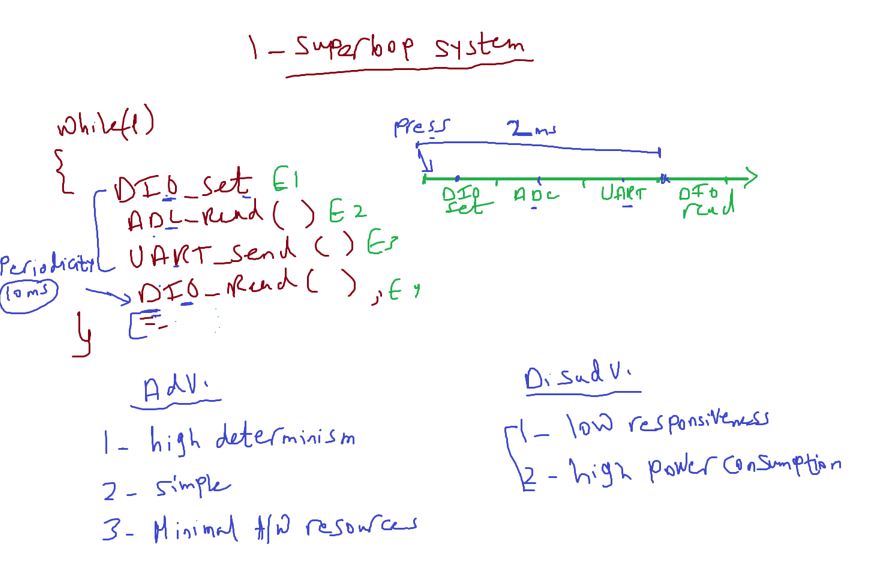 1 - Superloop system
while(1)
{
DIO_set E1
ADC_Read ( ) E2
UART_send ( ) E3
DIO_Read ( ) , E4
}
Periodicity
10ms
Press
2ms
DIO set
ADC
UART
DIO read
Adv.
1 - high determinism
2 - simple
3 - Minimal H/W resources
Disadv.
1 - low responsiveness
2 - high power consumption